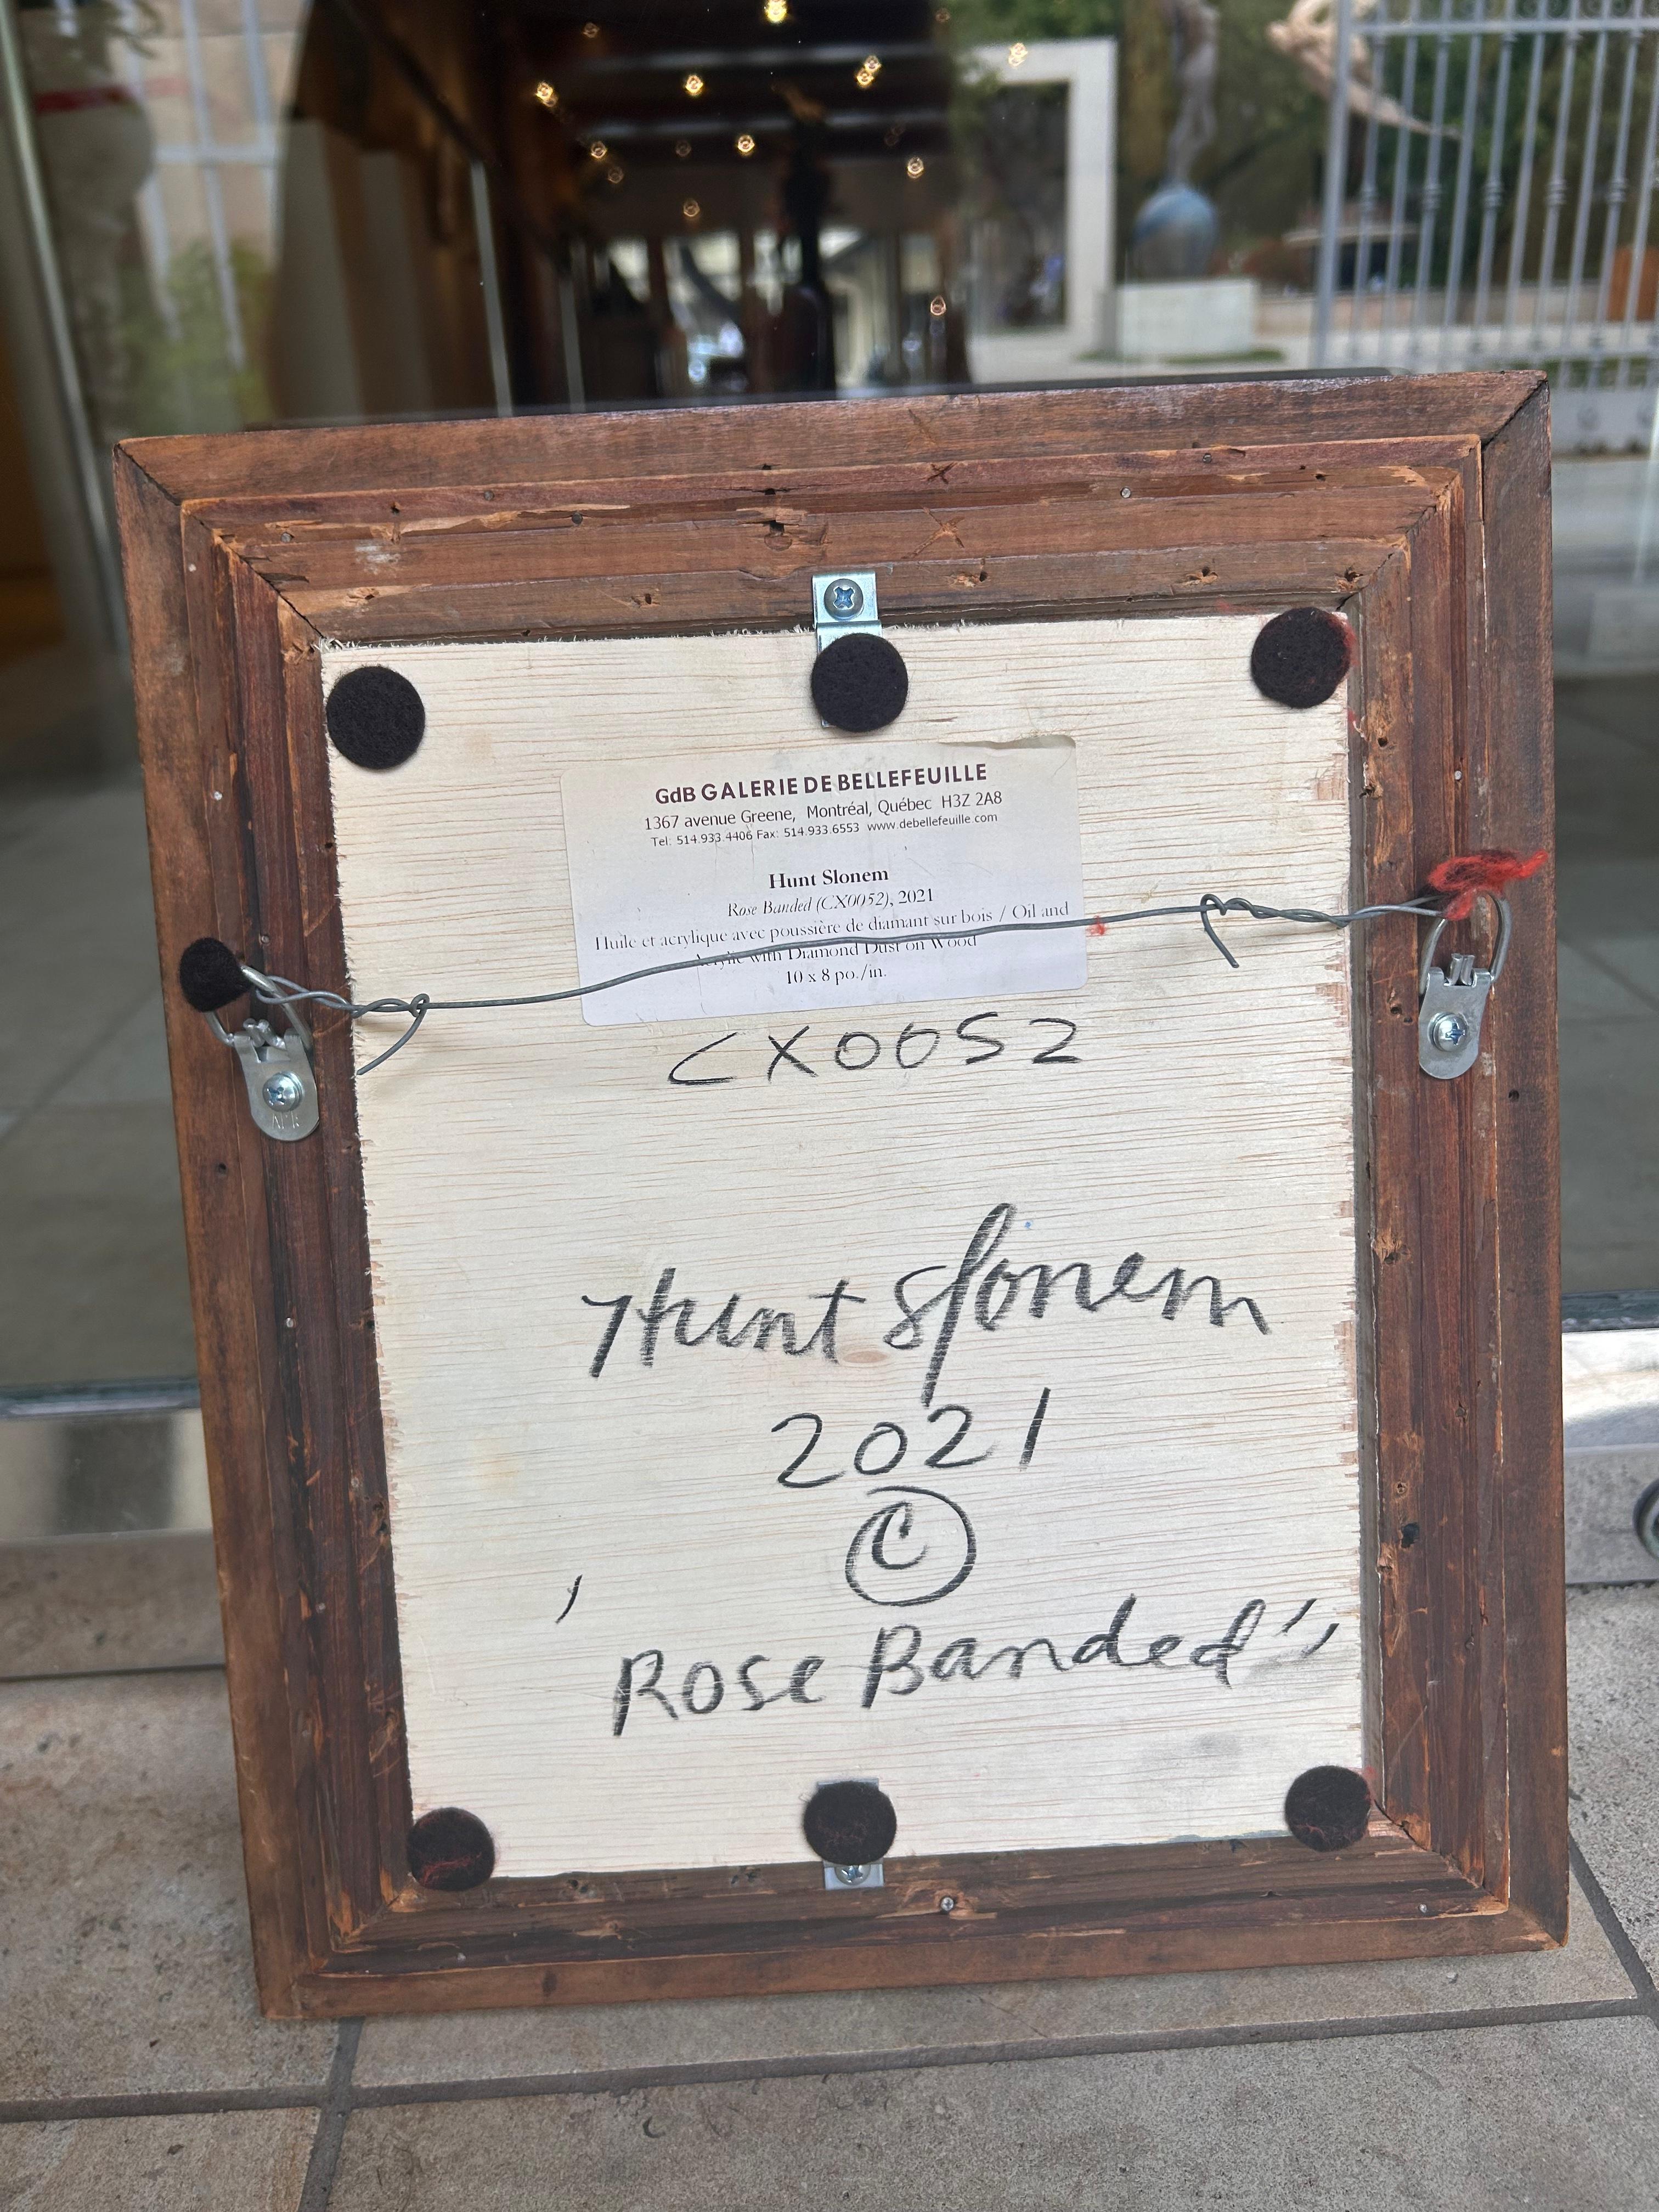 GdB GALERIE DE BELLEFEUILLE
1367 avenue Greene, Montréal, Québec H3Z 2A8
Tel: 514.933.4406 Fax: 514.933.6553 www.debellefeuille.com
Hunt Slonem
Rose Banded (CX0052), 2021
Huile et acrylique avec poussière de diamant sur bois / Oil and
Acrylic with Diamond Dust on Wood
10 x 8 po./in.
CX0052
Hunt Slonem
2021
©
'Rose Banded"